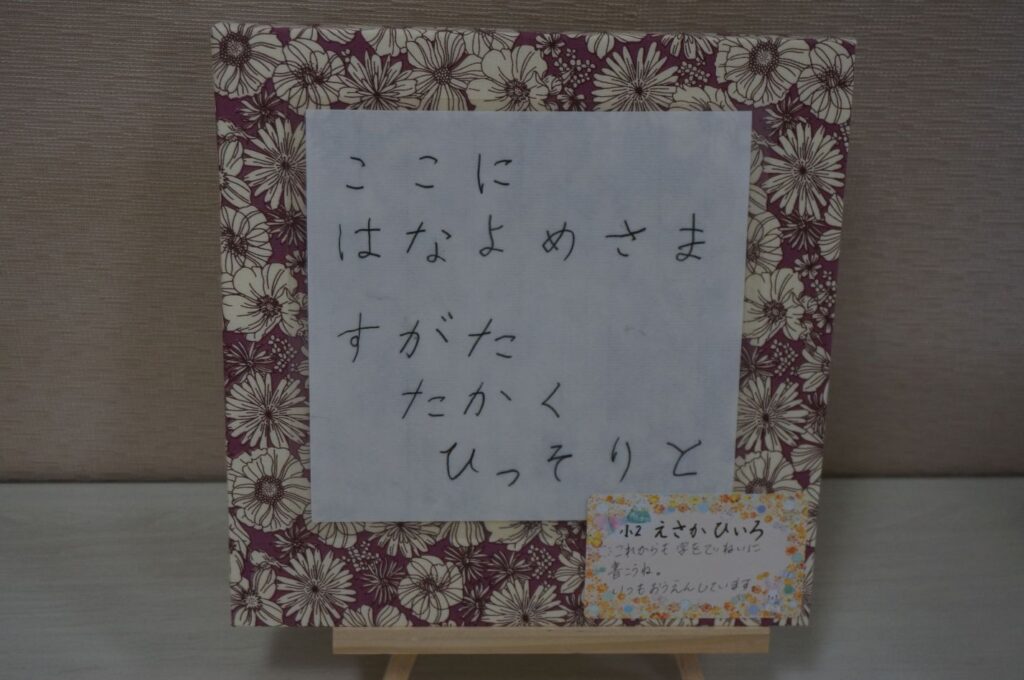 ここに
はなよめさま
すがた
たかく
ひっそりと
小2 えさか ひいろ
これからも 字をていねいに
書こうね。
いつもおうえんしています。